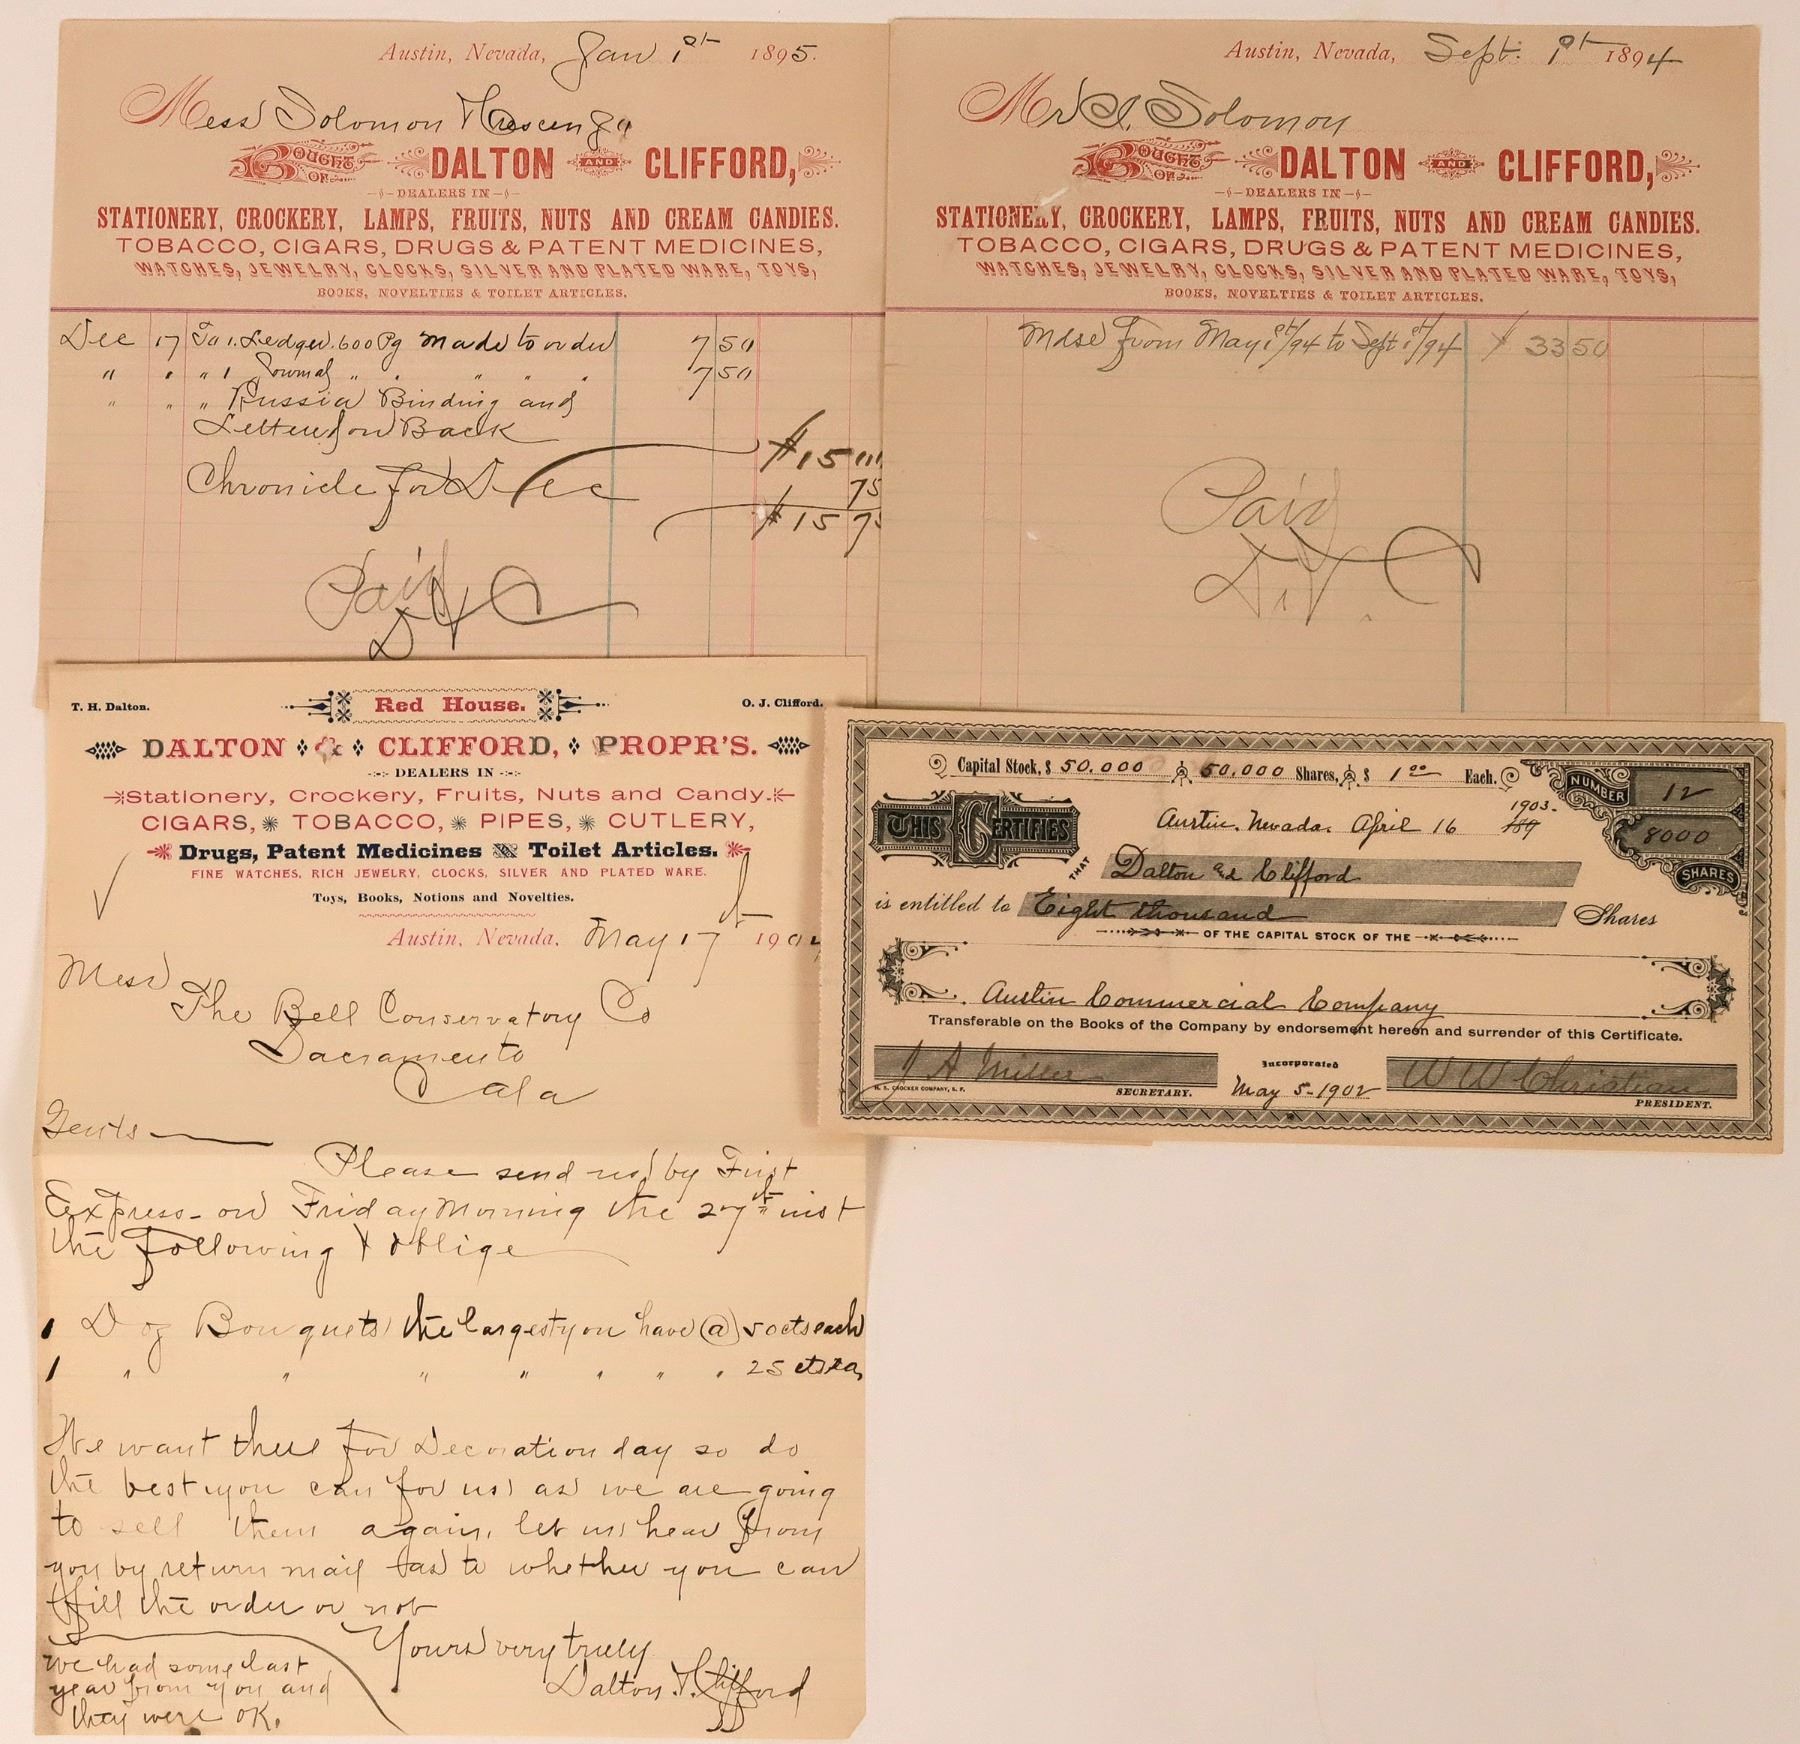 Austin, Nevada, Jan 1st 1895.
Mess Solomon
BOUGHT OF DALTON AND CLIFFORD,
DEALERS IN
STATIONERY, CROCKERY, LAMPS, FRUITS, NUTS AND CREAM CANDIES.
TOBACCO, CIGARS, DRUGS & PATENT MEDICINES,
WATCHES, JEWELRY, CLOCKS, SILVER AND PLATED WARE, TOYS,
BOOKS, NOVELTIES & TOILET ARTICLES.
Dec 17 To 1. Ledger. 600 Pg made to order 7 50
" " " 1 Journal " " " " 7 50
" " " Russia Binding and
Lettered on Back
$15
Chronicle for Dec 75
$15 75
Paid
D & C
Austin, Nevada, Sept. 1st 1894
Mr Solomon
BOUGHT OF DALTON AND CLIFFORD,
DEALERS IN
STATIONERY, CROCKERY, LAMPS, FRUITS, NUTS AND CREAM CANDIES.
TOBACCO, CIGARS, DRUGS & PATENT MEDICINES,
WATCHES, JEWELRY, CLOCKS, SILVER AND PLATED WARE, TOYS,
BOOKS, NOVELTIES & TOILET ARTICLES.
Mdse From May 1st/94 to Sept 1st/94 $ 33 50
Paid
D. & C
T. H. Dalton. Red House. O. J. Clifford.
DALTON & CLIFFORD, PROPR'S.
DEALERS IN
Stationery, Crockery, Fruits, Nuts and Candy.
CIGARS, TOBACCO, PIPES, CUTLERY,
Drugs, Patent Medicines Toilet Articles.
FINE WATCHES, RICH JEWELRY, CLOCKS, SILVER AND PLATED WARE.
Toys, Books, Notions and Novelties.
Austin, Nevada, May 17th 190
Mess
The Bell Conservatory Co
Sacramento
Cala
Gents
Please send us by First
Express - on Friday Morning the 27th inst
the following & oblige
1 Doz Bouquets the largest you have @ 50cts each
1 " " " " " " " 25 cts ea
We want these for Decoration day so do
the best you can for us as we are going
to sell them again, let us hear from
you by return mail as to whether you can
fill the order or not
Yours very truly
Dalton & Clifford
we had some last
year from you and
they were OK.
Capital Stock, $ 50,000 50,000 Shares, $ 1 00 Each.
NUMBER 12
THIS CERTIFIES Austin, Nevada, April 16 1903. 189
8000
SHARES
THAT Dalton and Clifford
is entitled to Eight thousand Shares
OF THE CAPITAL STOCK OF THE
Austin Commercial Company
Transferable on the Books of the Company by endorsement hereon and surrender of this Certificate.
J A Miller Incorporated W W Christian
H. S. CROCKER COMPANY, S. F. SECRETARY. May 5-1902 PRESIDENT.